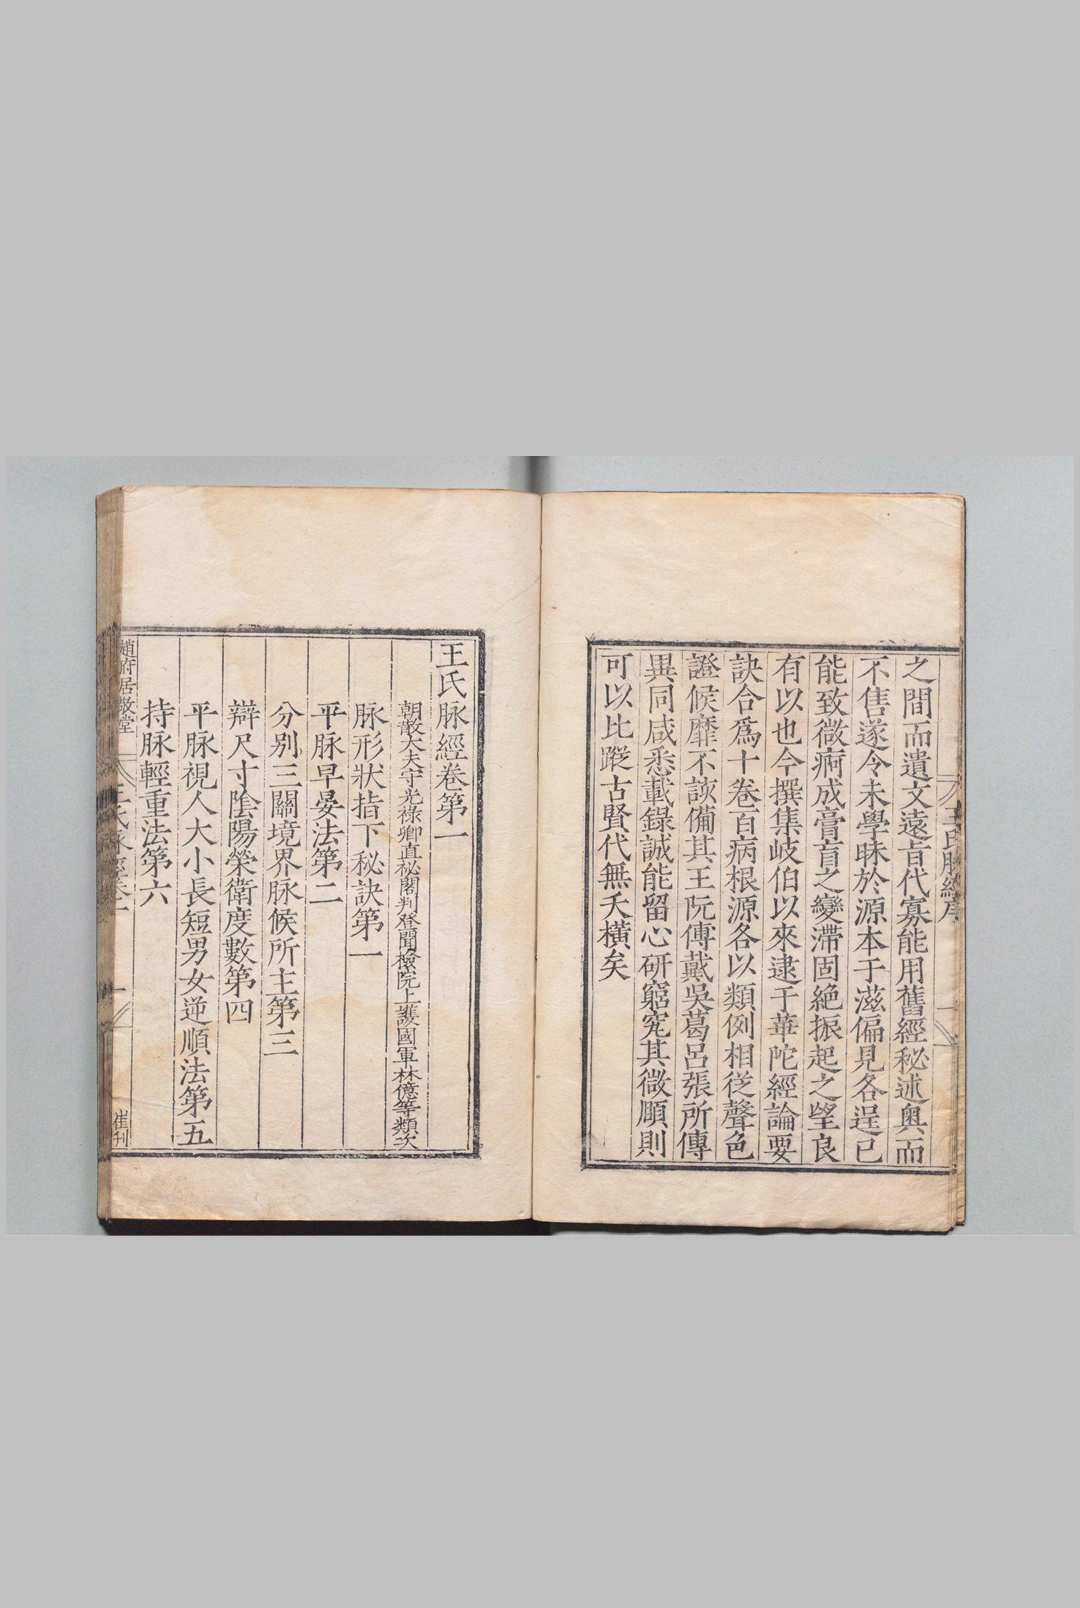 之間而遺文遠旨代寡能用舊經秘述奥而
不售遂令末學昧於源本于滋偏見各逞已
能致微痾成膏肓之變滯固絶振起之望良
有以也今撰集岐伯以來逮于華陀經論要
訣合爲十卷百病根源各以類例相從聲色
證候靡不該備其王阮傳戴吳葛吕張所傳
異同咸悉載錄誠能留心研窮究其微賾則
可以比蹤古賢代無夭橫矣
王氏脉經序
王氏脉經卷第一
朝散大夫守光祿卿直秘閣判登聞檢院上護國軍林億等類次
脉形狀指下秘訣第一
平脉早晏法第二
分別三關境界脉候所主第三
辯尺寸陰陽榮衛度數第四
平脉視人大小長短男女逆順法第五
持脉輕重法第六
趙府居敬堂
王氏脉經卷一
一
崔刊